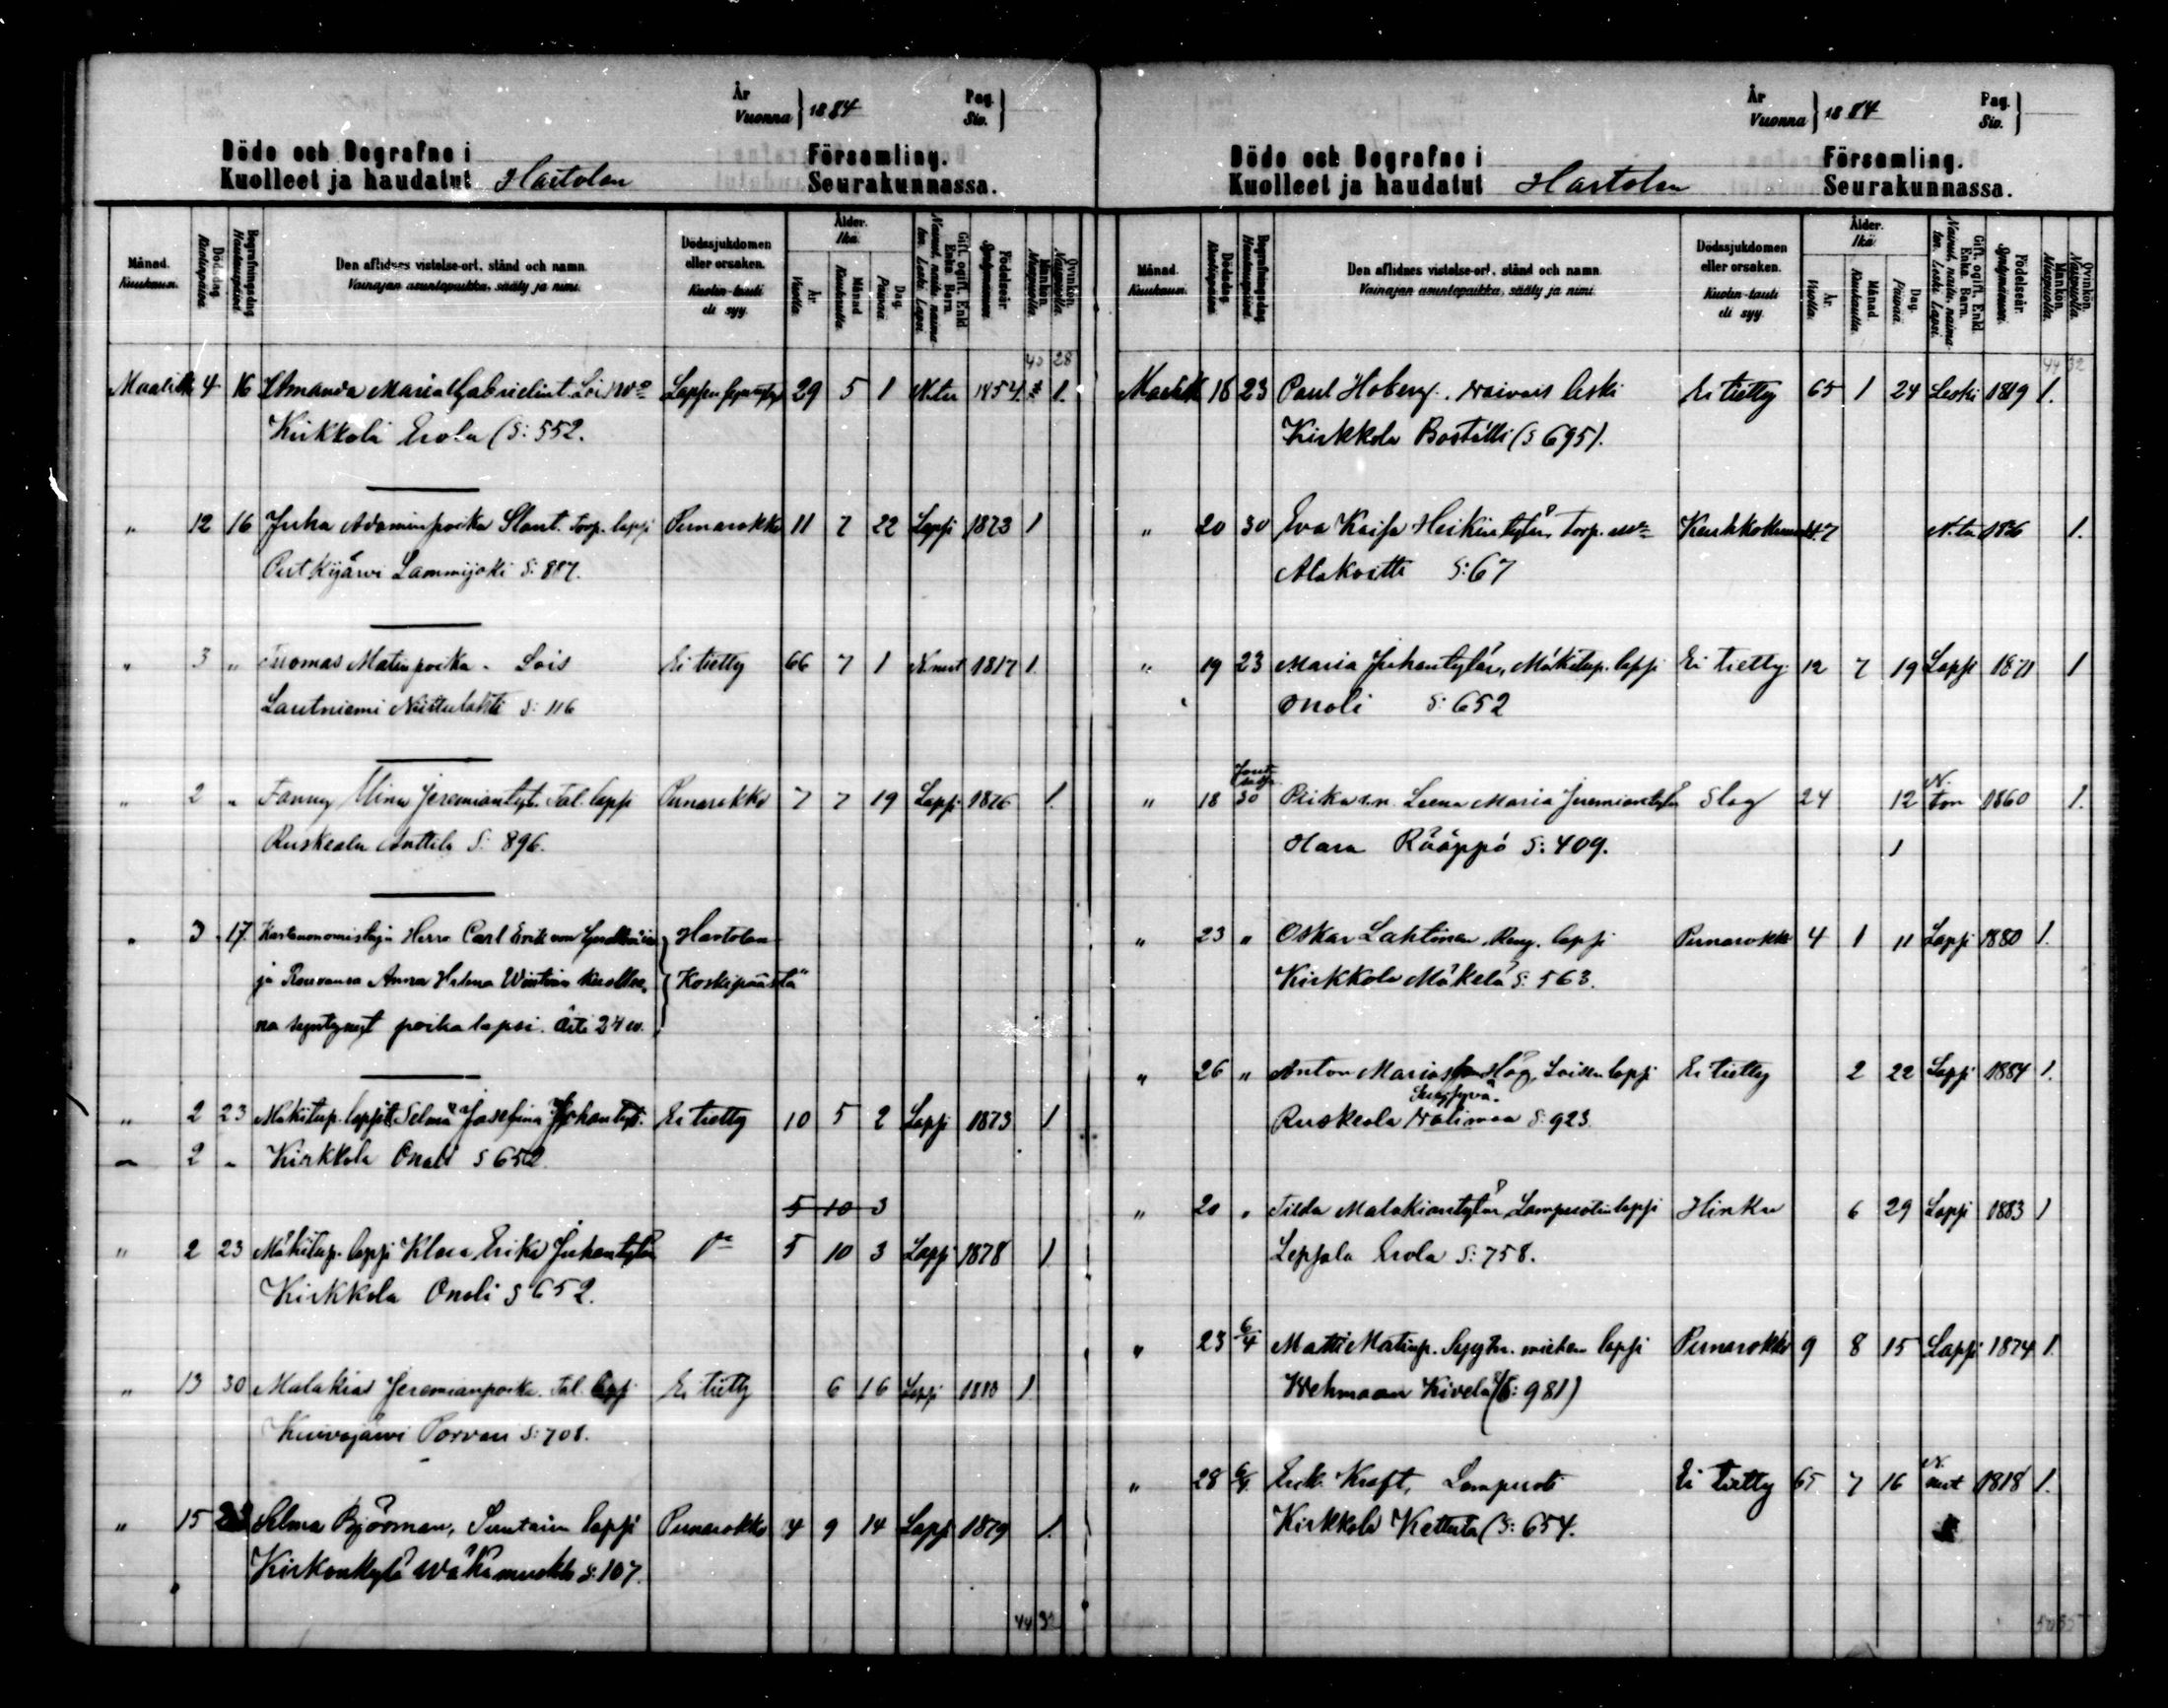 År
Vuonna } 1884
Pag.
Siv. }
Döde och Begrafne i
Kuolleet ja haudatut Hartolan
Församling.
Seurakunnassa.
Månad. Kuukausi.
Dödsdag Kuolinpäivä
Begrafningsdag Hautauspäivä
Den aflidnes vistelse-ort, stånd och namn.
Vainajan asuntopaikka, sääty ja nimi.
Dödssjukdomen eller orsaken.
Kuolin-tauti eli syy.
Ålder. Ikä.
År. Vuotta.
Månad Kuukautta.
Dag. Päivää.
Gift, ogift. Enkl. Enka. Barn.
Födelseår. Syntymävuosi.
Mankön. Miespuolia.
Qvinkön. Naispuolia.
40 28
Maalisk 4 16 Amanda Maria Gabrielint. 29 5 1 1854 1.
Kirkkola Erola (S: 552.
" 12 16 Juha Adaminpoika torp. lapsi Punarokko 11 7 22 Lapsi 1873 1
Putkijärvi Lammijoki S: 887.
" 3 " Tuomas Matinpoika - Lois Ei tietty 66 7 1 N. mut 1817 1.
Lautniemi S: 116
" 2 " Fanny Mina Jeremiantyt. Tal. lapsi Punarokko 7 7 19 Lapsi 1876 1.
Ruskeala Anttila S: 896.
" 3 17 Herra Carl Erik von Hartolan
ja Rouvansa Anna Helena kuollee- Koskipäästä"
na syntynyt poikalapsi.
" 2 23 Mäkitup. lapsi Selma Josefina Juhantyt. Ei tietty 10 5 2 Lapsi 1873 1
" 2 " Kirkkola Onali S 652
5 10 3
" 2 23 Mäkitup. lapsi Klara Erika Juhantytär 5 10 3 Lapsi 1878 1
Kirkkola Onali S 652.
" 13 30 Malakias Jeremianpoika. Tal. lapsi Ei tietty 6 16 Lapsi 1883 1
Kuivajärvi Porvari S: 708.
" 15 23 Selma Björman, Suntain lapsi Punarokko 4 9 14 Lapsi 1879 1.
Kirkonkylä S: 107.
44 32
År
Vuonna } 1884
Pag.
Siv. }
Döde och Begrafne i
Kuolleet ja haudatut Hartolan
Församling.
Seurakunnassa.
Månad. Kuukausi.
Dödsdag. Kuolinpäivä
Begrafningsdag. Hautauspäivä.
Den aflidnes vistelse-ort, stånd och namn.
Vainajan asuntopaikka, sääty ja nimi.
Dödssjukdomen eller orsaken.
Kuolin-tauti eli syy.
Ålder. Ikä.
År. Vuotta.
Månad. Kuukautta.
Dag. Päivää.
Gift, ogift. Enkl. Enka. Barn.
Födelseår. Syntymävuosi.
Mankön. Miespuolia.
Qvinkön. Naispuolia.
44 32
Maalisk 16 23 Paul Hoberg. Vaivais leski Ei tietty 65 1 24 Leski 1819 1.
Kirkkola Boställi (S 695).
" 20 30 Eva Kaisa Heikintytär, torp. Keuhkokuume 47 1836 1.
Alakoitti S: 67
" 19 23 Maria Juhantytär, Mäkitup. lapsi Ei tietty 12 7 19 Lapsi 1871 1
Onali S: 652
" 18 30 Piika Leena Maria Jeremiantytär Slag 24 12 N. ton 1860 1.
Hara Rääppö S: 409. 1
" 23 " Oskar Lahtinen, Reng. lapsi Punarokko 4 1 11 Lapsi 1880 1.
Kirkkola Mäkelä S: 563.
" 26 " Anton Mariaspoika Hög, Loisen lapsi Ei tietty 2 22 Lapsi 1884 1.
Ruskeala Valimaa S: 923
" 20 " Tilda Malakiantytär, Lampuotin lapsi Hinku 6 29 Lapsi 1883 1
Lepsala Erola S: 758.
" 23 6/4 Matti Matinp. miehen lapsi Punarokko 9 8 15 Lapsi 1874 1.
Wehmaan Kivelä (S: 981)
" 28 6/4 Erik Kraft, Lampuoti Ei tietty 65 7 16 N. mut 1818 1.
Kirkkola Kettula (S: 654.